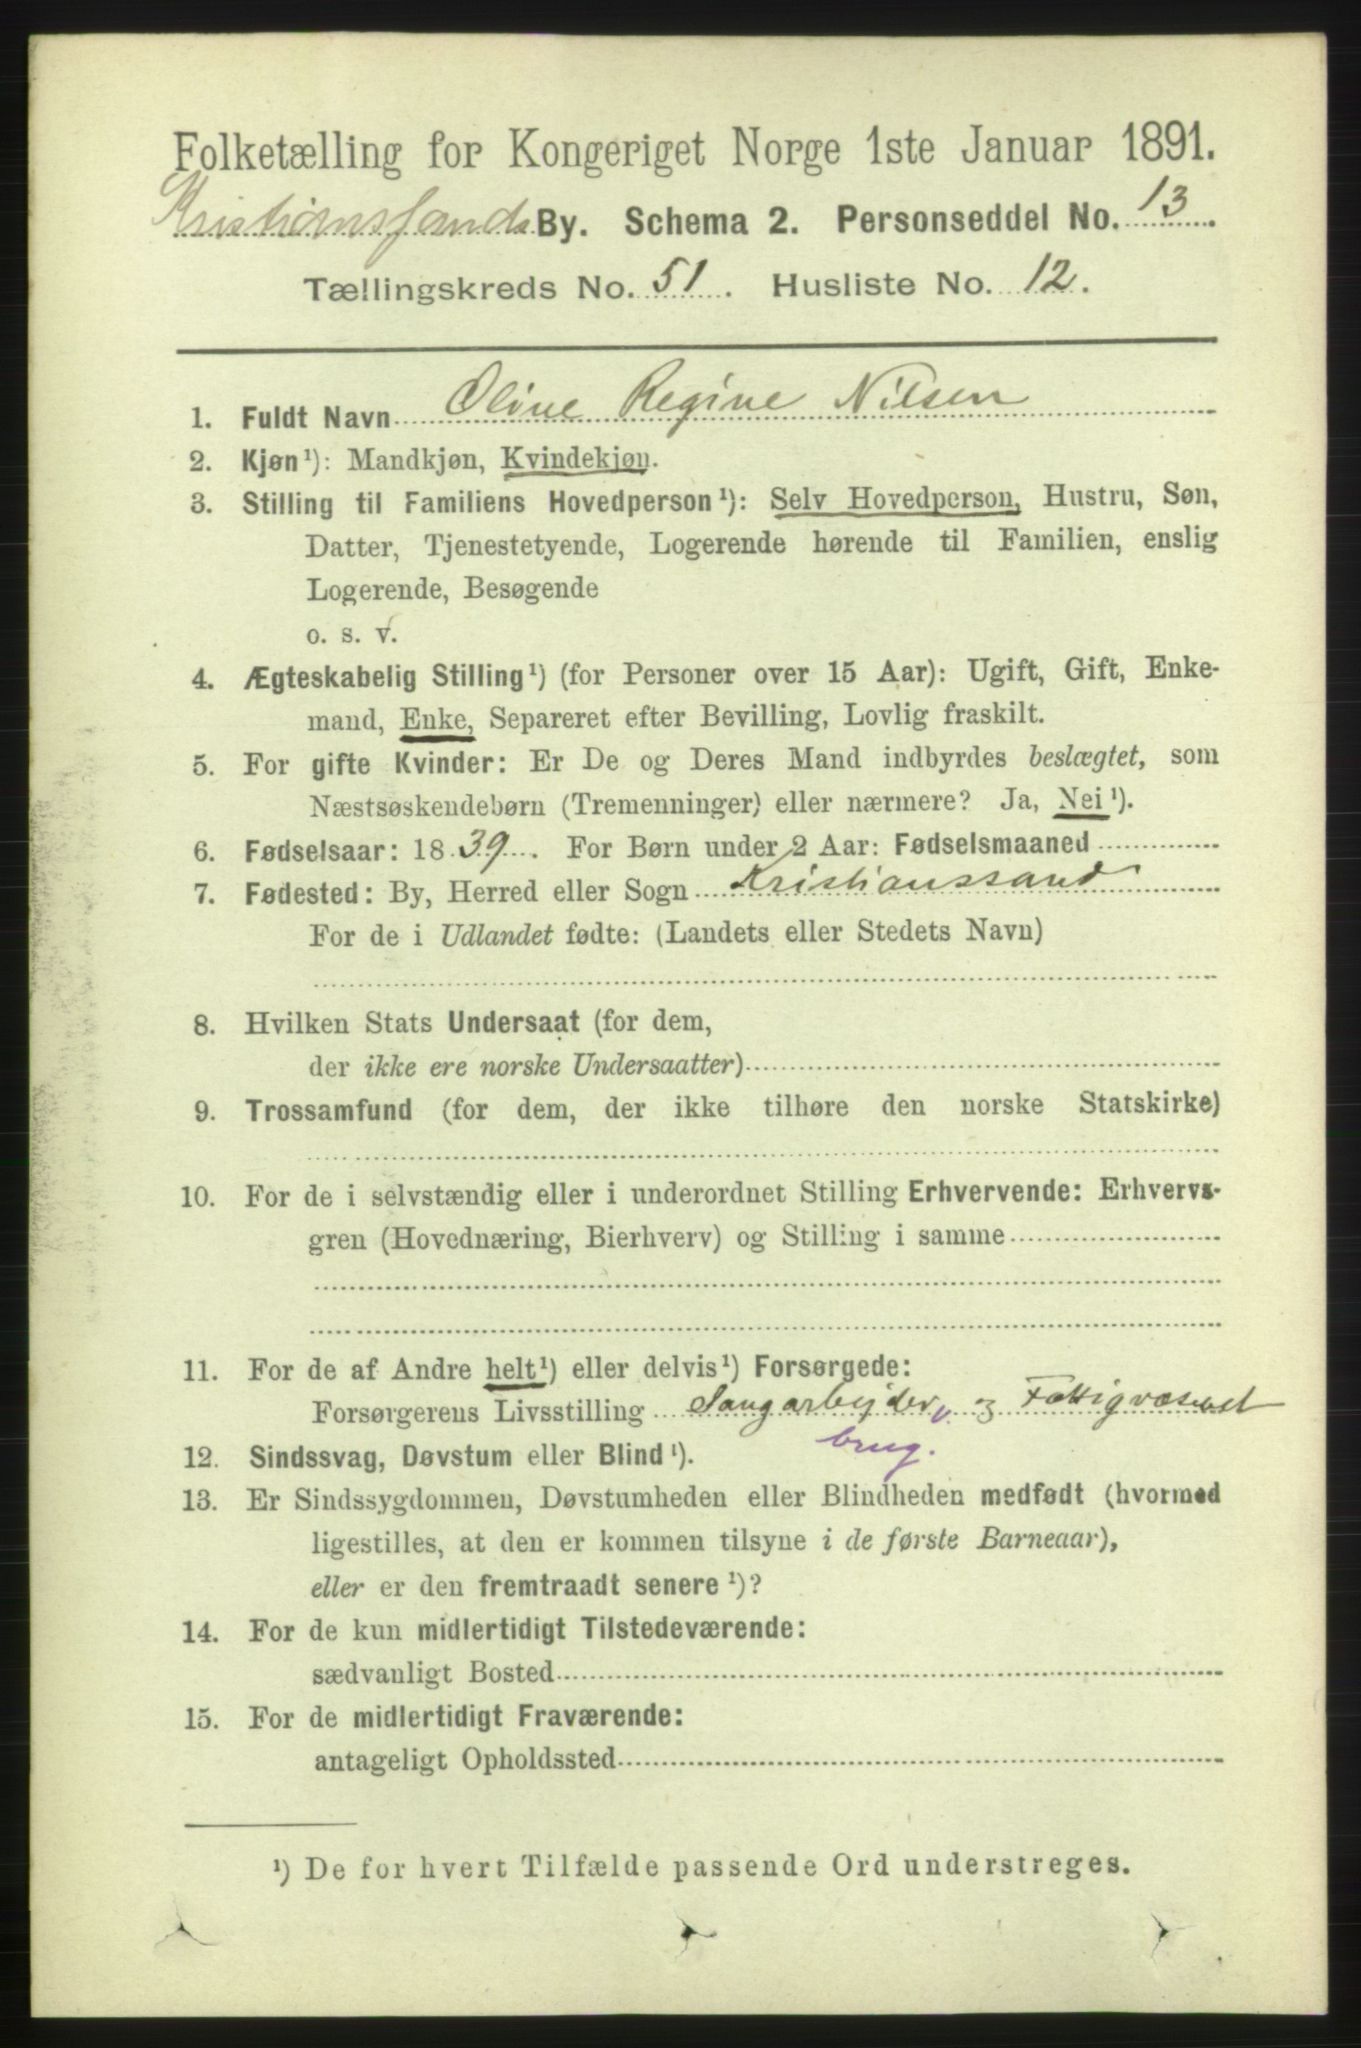 Folketælling for Kongeriget Norge 1ste Januar 1891.
Kristianssands By. Schema 2. Personseddel No. 13.
Tællingskreds No. 51. Husliste No. 12.
1. Fuldt Navn Oline Regine Nilsen
2. Kjøn¹): Mandkjøn, Kvindekjøn.
3. Stilling til Familiens Hovedperson¹): Selv Hovedperson, Hustru, Søn,
Datter, Tjenestetyende, Logerende hørende til Familien, enslig
Logerende, Besøgende
o. s. v.
4. Ægteskabelig Stilling¹) (for Personer over 15 Aar): Ugift, Gift, Enke-
mand, Enke, Separeret efter Bevilling, Lovlig fraskilt.
5. For gifte Kvinder: Er De og Deres Mand indbyrdes beslægtet, som
Næstsøskendebørn (Tremenninger) eller nærmere? Ja, Nei¹).
6. Fødselsaar: 1839. For Børn under 2 Aar: Fødselsmaaned
7. Fødested: By, Herred eller Sogn Kristianssand
For de i Udlandet fødte: (Landets eller Stedets Navn)
8. Hvilken Stats Undersaat (for dem,
der ikke ere norske Undersaatter)
9. Trossamfund (for dem, der ikke tilhøre den norske Statskirke)
10. For de i selvstændig eller i underordnet Stilling Erhvervende: Erhvervs-
gren (Hovednæring, Bierhverv) og Stilling i samme
11. For de af Andre helt¹) eller delvis¹) Forsørgede:
Forsørgerens Livsstilling Saugarbejder, og Fattigvæsenet
brug.
12. Sindssvag, Døvstum eller Blind¹).
13. Er Sindssygdommen, Døvstumheden eller Blindheden medfødt (hvormed
ligestilles, at den er kommen tilsyne i de første Barneaar),
eller er den fremtraadt senere¹)?
14. For de kun midlertidigt Tilstedeværende:
sædvanligt Bosted
15. For de midlertidigt Fraværende:
antageligt Opholdssted
¹) De for hvert Tilfælde passende Ord understreges.